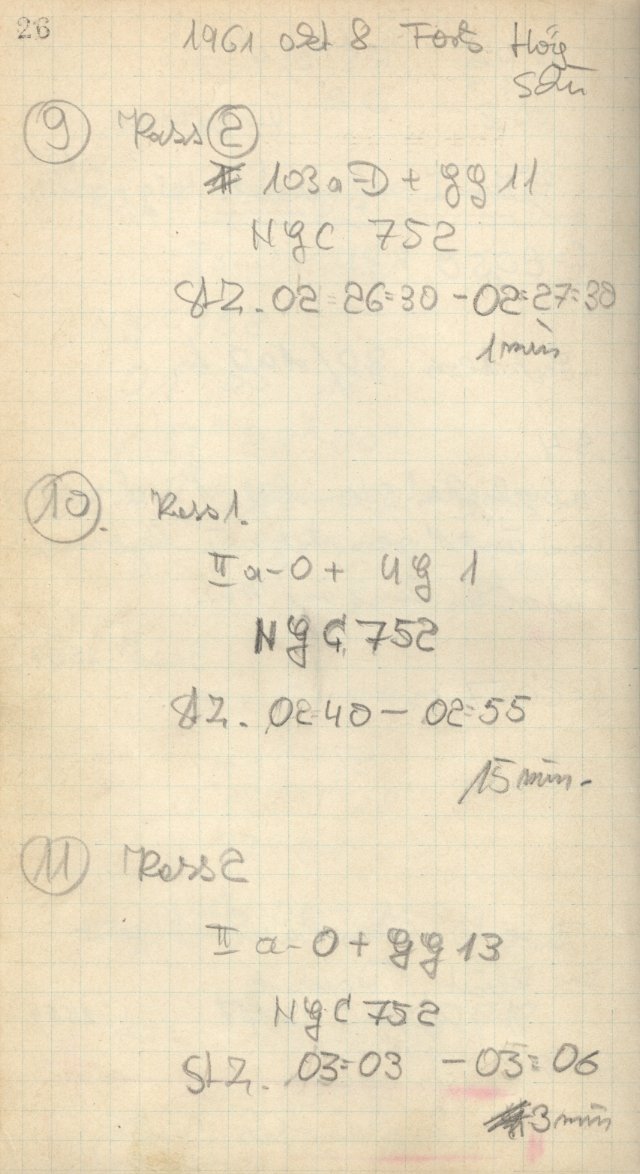 26
1961 okt 8 Forts Hög
Sdn
9 Kass 2
103a-D + gg 11
NGC 752
StZ. 02=26=30 - 02=27=30
1 min
10. Kass 1.
IIa-O + ug 1
NGC 752
StZ. 02=40 - 02=55
15 min.
11 Kass 2
IIa-O + gg 13
NGC 752
StZ. 03=03 - 03=06
3 min